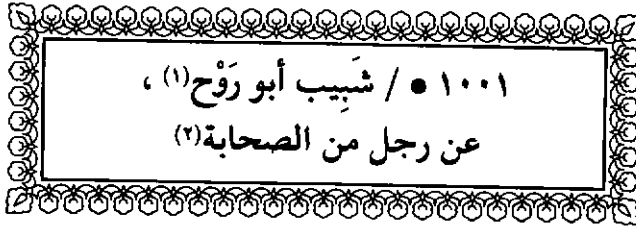 ١٠٠١ ● / شَبِيب أبو رَوْح(١) ،
عن رجل من الصحابة(٢)